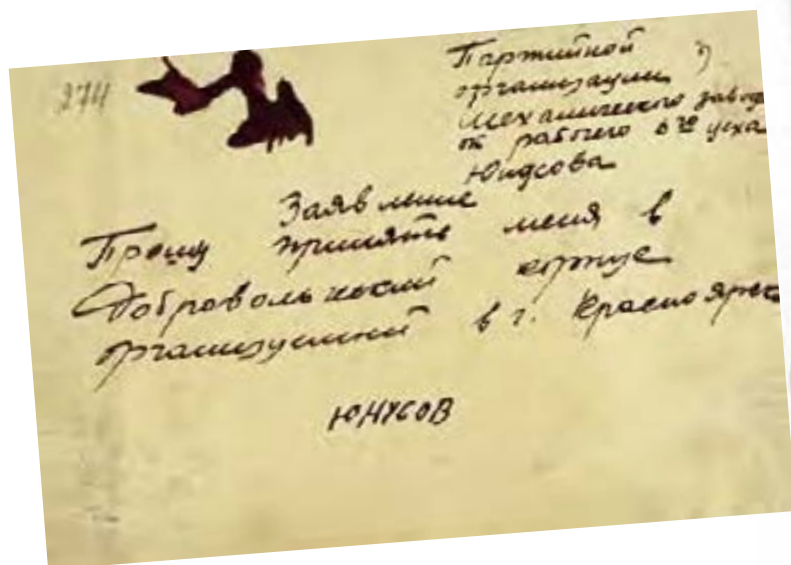 274
Партийной
организации
Механического завода
от рабочего 6го цеха
Юнусова
Заявление
Прошу принять меня в
Добровольческий корпус
организуемый в г. Красноярск
ЮНУСОВ